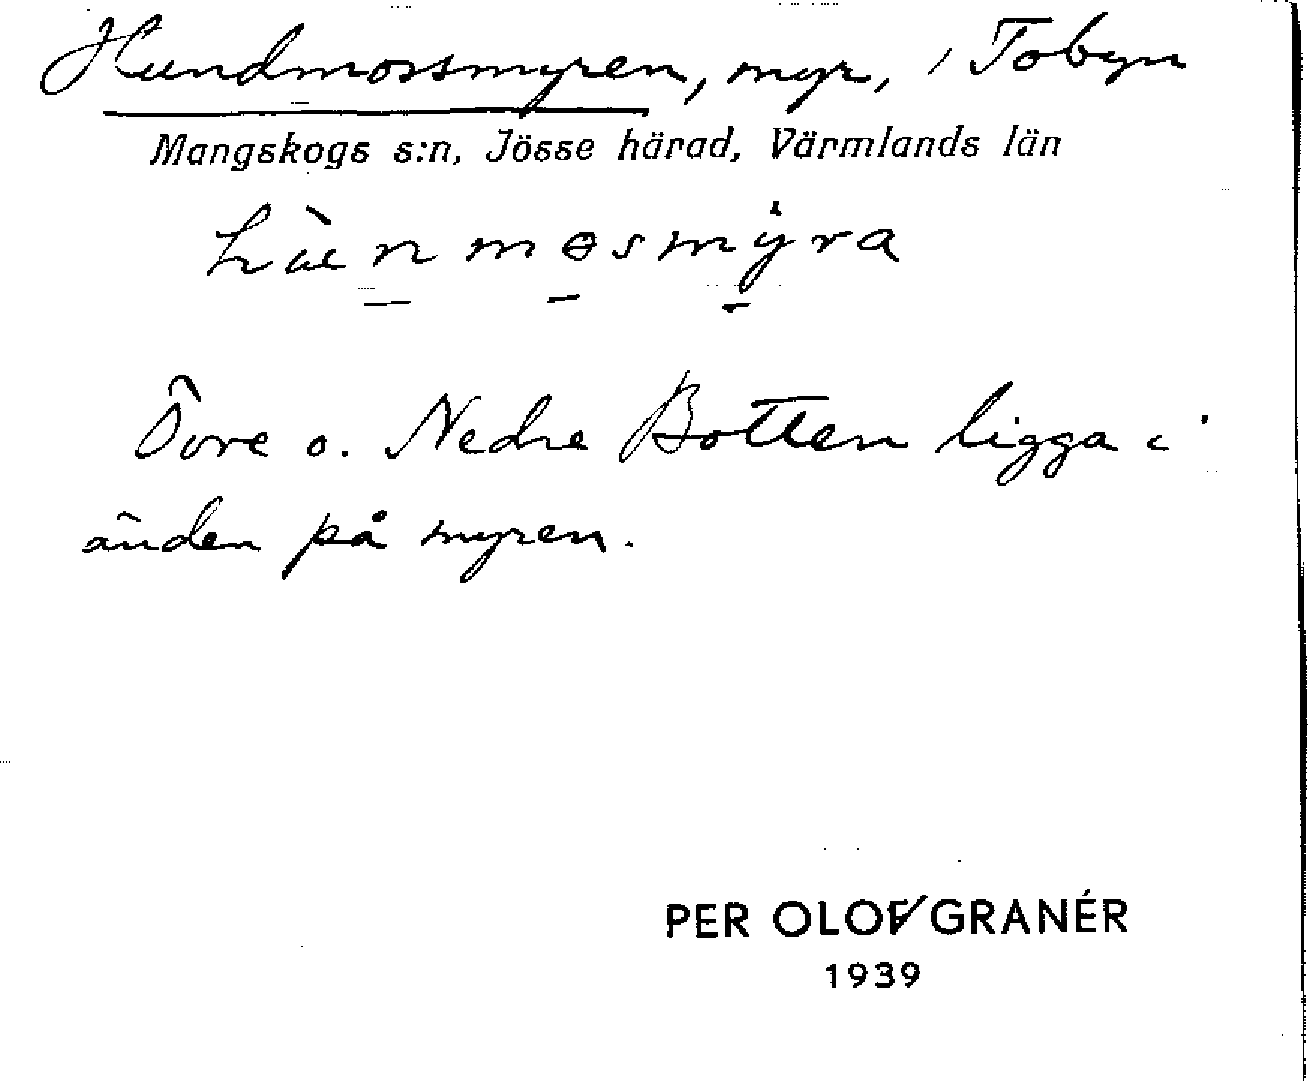 Hundmossmyren, myr, i Tobyn
Mangskogs s:n, Jösse härad, Värmlands län
Övre o. Nedre Botten ligga i
änden på myren.
PER OLOF GRANÉR
1939